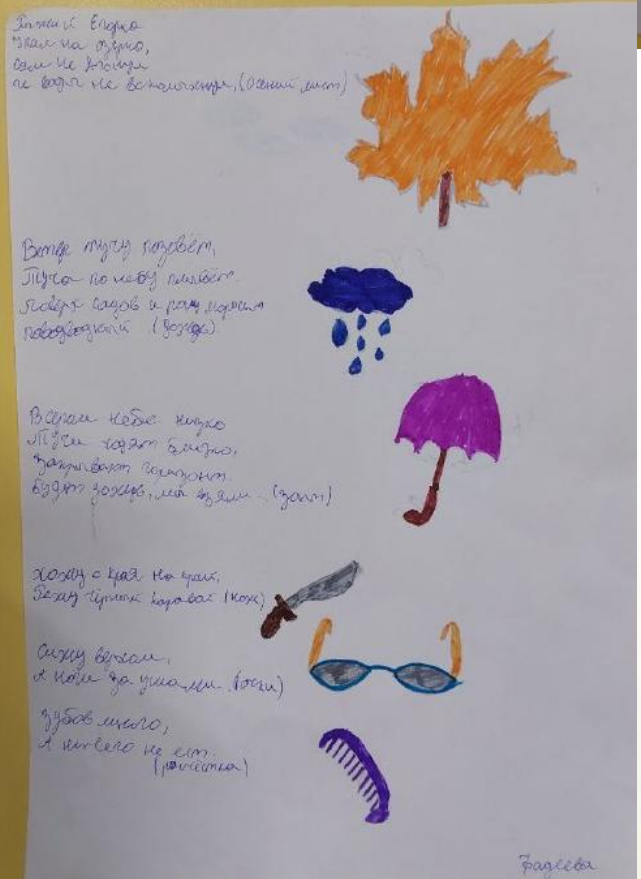 Рыжий Егорка
Упал на озерко,
Сам не утонул
и воды не всколыхнул. (Осений лист)
Ветер тучу позовёт,
Туча по небу плывёт.
Поверх садов и рощ
(дождь)
В сером небе низко
Тучи ходят близко,
Закрывают горизонт.
Будет дождь, мы взяли... (зонт)
Хожу с края на край,
Режу чёрный каравай (нож)
Сижу верхом,
А ноги за ушами. (очки)
Зубов много,
А ничего не ест.
(расчёстка)
Фадеева